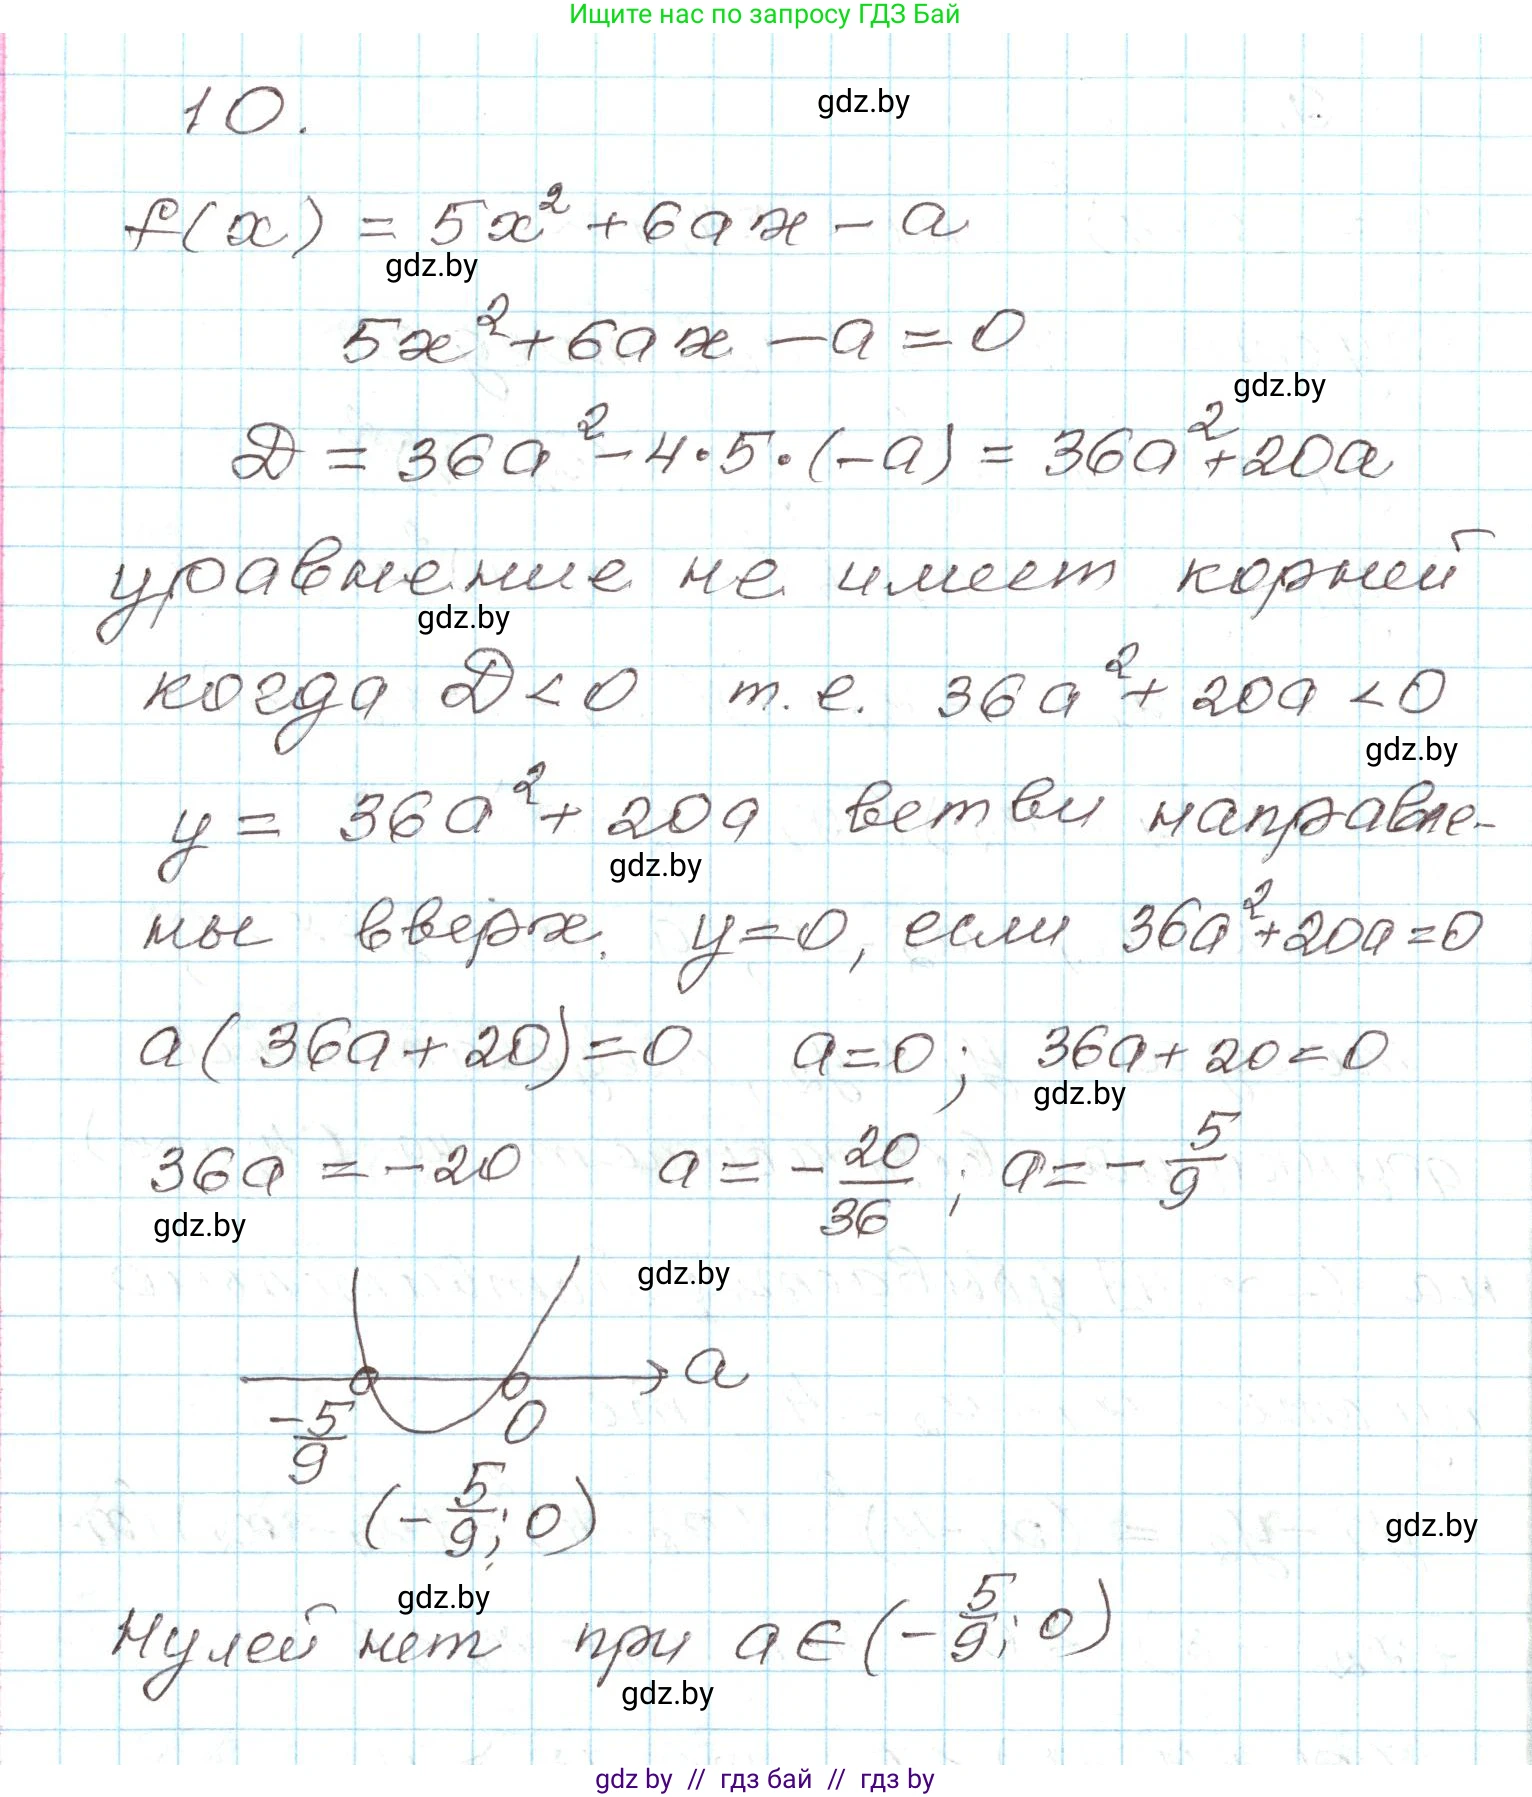 Ищите нас по запросу ГДЗ Бай
10.
gdz.by
f(x) = 5x² + 6ax - a
gdz.by
5x² + 6ax - a = 0
gdz.by
D = 36a² - 4·5·(-a) = 36a² + 20a
уравнение не имеет корней
gdz.by
когда D < 0 т.е. 36a² + 20a < 0
gdz.by
y = 36a² + 20a ветви направле-
gdz.by
ны вверх. y = 0, если 36a² + 20a = 0
a(36a + 20) = 0 a = 0; 36a + 20 = 0
gdz.by
36a = -20 a = -20/36; a = -5/9
gdz.by
gdz.by
a
-5/9 0
(-5/9; 0)
gdz.by
gdz.by
Нулей нет при a ∈ (-5/9; 0)
gdz.by
gdz by // гдз бай // гдз by